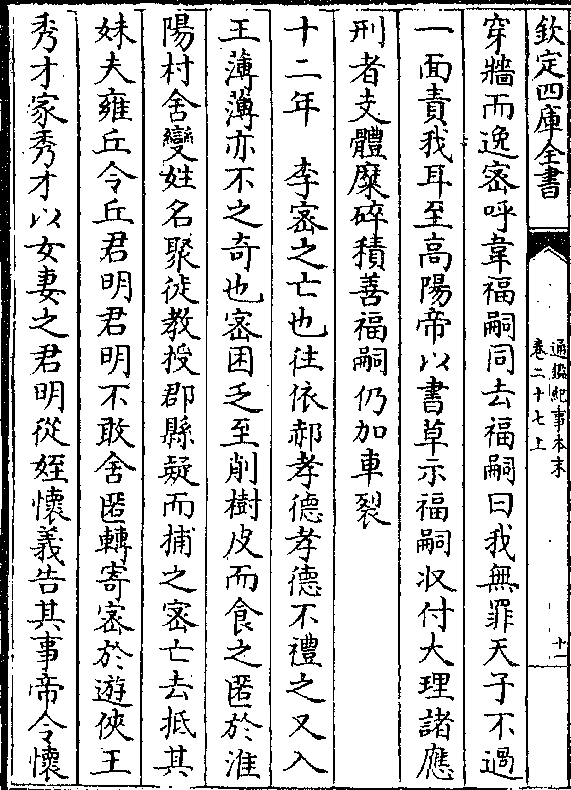 欽定四庫全書
通鑑紀事本末
卷二十七上
十一
穿牆而逸密呼韋福嗣同去福嗣曰我無罪天子不過
一面責我耳至高陽帝以書草示福嗣收付大理諸應
刑者支體糜碎積善福嗣仍加車裂
十二年　李密之亡也往依郝孝德孝德不禮之又入
王薄薄亦不之奇也密困乏至削樹皮而食之匿於淮
陽村舍變姓名聚徒教授郡縣疑而捕之密亡去抵其
妹夫雍丘令丘君明君明不敢舍匿轉寄密於遊俠王
秀才家秀才以女妻之君明從姪懷義告其事帝令懷